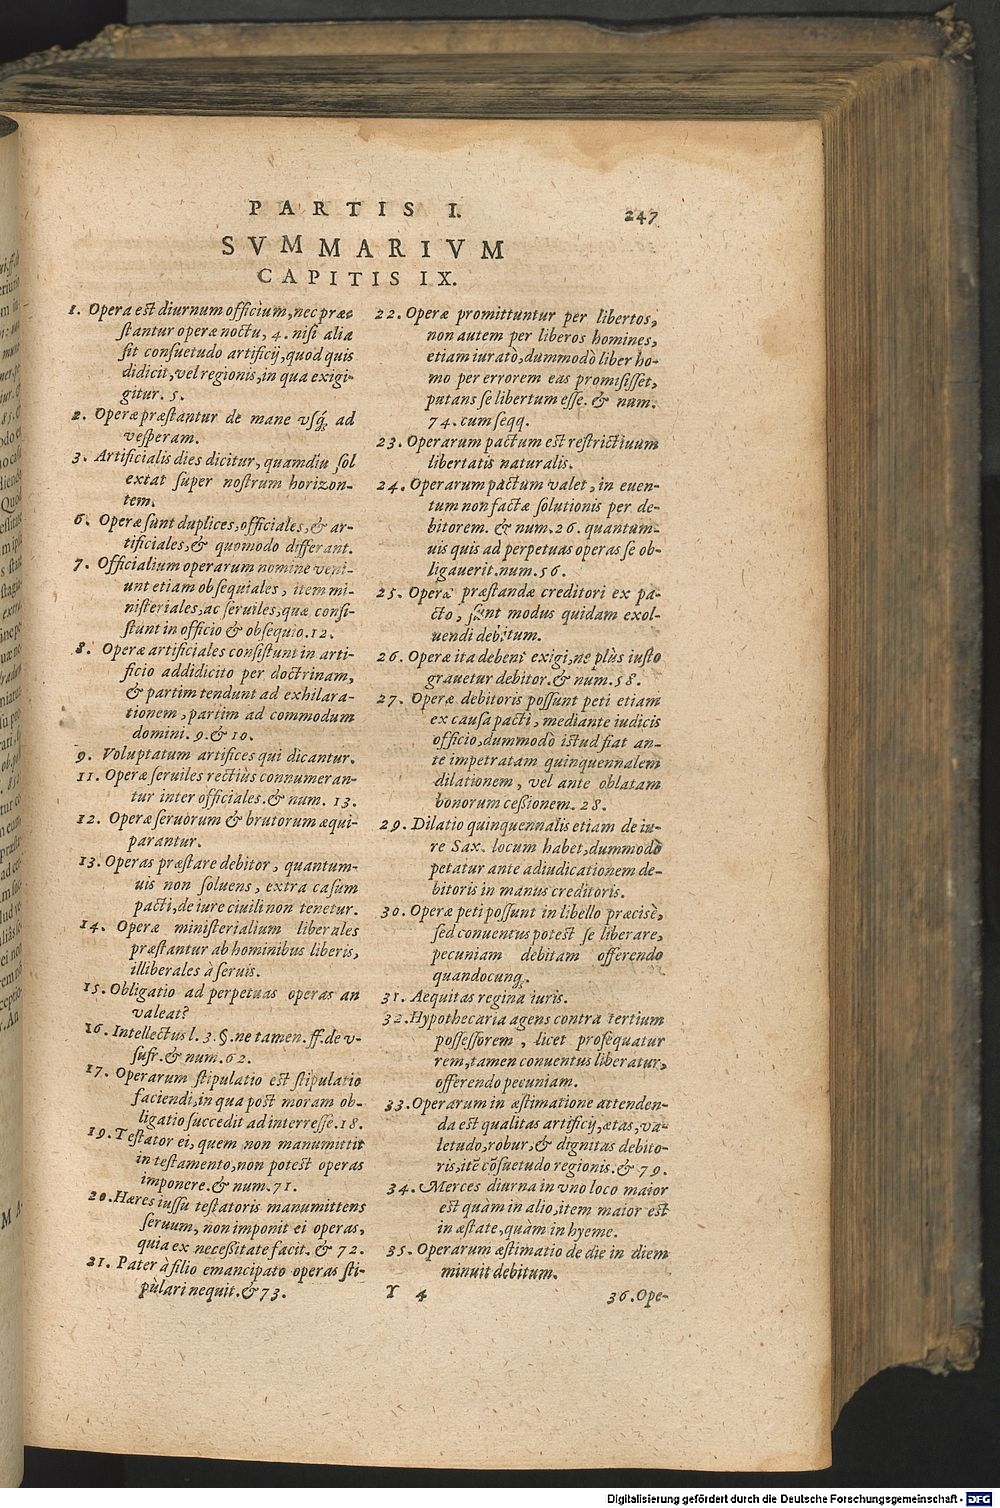 PARTIS I. 247
SVMMARIVM
CAPITIS IX.
1. Opera est diurnum officium, nec præ-
stantur operæ noctu, 4. nisi alia
sit consuetudo artificij, quod quis
didicit, vel regionis, in qua exigi-
gitur. 5.
2. Operæ præstantur de mane vsq́; ad
vesperam.
3. Artificialis dies dicitur, quamdiu sol
extat super nostrum horizon-
tem.
6. Operæ sunt duplices, officiales, & ar-
tificiales, & quomodo differant.
7. Officialium operarum nomine veni-
unt etiam obsequiales, item mi-
nisteriales, ac seruiles, quæ consi-
stunt in officio & obsequio. 12.
8. Operæ artificiales consistunt in arti-
ficio addidicito per doctrinam,
& partim tendunt ad exhilara-
tionem, partim ad commodum
domini. 9. & 10.
9. Voluptatum artifices qui dicantur.
11. Operæ seruiles rectiùs connumeran-
tur inter officiales. & num. 13.
12. Operæ seruorum & brutorum æqui-
parantur.
13. Operas præstare debitor, quantum-
uis non soluens, extra casum
pacti, de iure ciuili non tenetur.
14. Operæ ministerialium liberales
præstantur ab hominibus liberis,
illiberales à seruis.
15. Obligatio ad perpetuas operas an
valeat?
16. Intellectus l. 3. §. ne tamen. ff. de v-
sufr. & num. 62.
17. Operarum stipulatio est stipulatio
faciendi, in qua post moram ob-
ligatio succedit ad interresse. 18.
19. Testator ei, quem non manumittit
in testamento, non potest operas
imponere. & num. 71.
20. Hæres iussu testatoris manumittens
seruum, non imponit ei operas,
quia ex necessitate facit. & 72.
21. Pater à filio emancipato operas sti-
pulari nequit. & 73.
22. Operæ promittuntur per libertos,
non autem per liberos homines,
etiam iuratò, dummodò liber ho-
mo per errorem eas promisisset,
putans se libertum esse. & num.
74. cum seqq.
23. Operarum pactum est restrictiuum
libertatis naturalis.
24. Operarum pactum valet, in euen-
tum non factæ solutionis per de-
bitorem. & num. 26. quantum-
uis quis ad perpetuas operas se ob-
ligauerit. num. 56.
25. Operæ præstandæ creditori ex pa-
cto, sunt modus quidam exol-
uendi debitum.
26. Operæ ita debent exigi, ne plùs iusto
grauetur debitor. & num. 58.
27. Operæ debitoris possunt peti etiam
ex causa pacti, mediante iudicis
officio, dummodò istud fiat an-
te impetratam quinquennalem
dilationem, vel ante oblatam
bonorum cessionem. 28.
29. Dilatio quinquennalis etiam de iu-
re Sax. locum habet, dummodò
petatur ante adiudicationem de-
bitoris in manus creditoris.
30. Operæ peti possunt in libello præcisè,
sed conuentus potest se liberare,
pecuniam debitam offerendo
quandocunq;.
31. Aequitas regina iuris.
32. Hypothecaria agens contra tertium
possessorem, licet prosequatur
rem, tamen conuentus liberatur,
offerendo pecuniam.
33. Operarum in æstimatione attenden-
da est qualitas artificij, ætas, va-
letudo, robur, & dignitas debito-
ris, itẽ cõsuetudo regionis. & 79.
34. Merces diurna in vno loco maior
est quàm in alio, item maior est
in æstate, quàm in hyeme.
35. Operarum æstimatio de die in diem
minuit debitum.
Y 4 36. Ope-
Digitalisierung gefördert durch die Deutsche Forschungsgemeinschaft - DFG